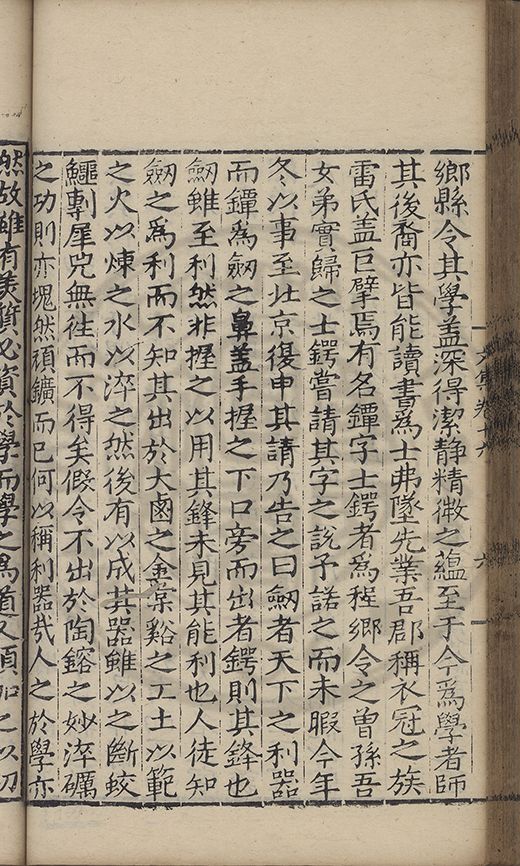 鄉縣令其學盖深得潔静精微之蘊至于今為學者師
其後裔亦皆能讀書為士弗墜先業吾郡稱衣冠之族
雷氏盖巨擘焉有名鐔字士鍔者為程鄉令之曾孫吾
女弟實歸之士鍔嘗請其字之說予諾之而未暇今年
冬以事至北京復申其請乃告之曰劒者天下之利器
而鐔為劒之鼻盖手握之下口旁而出者鍔則其鋒也
劒雖至利然非握之以用其鋒未見其能利也人徒知
劒之為利而不知其出於大鹵之金棠谿之工土以範
之火以煉之水以淬之然後有以成其器雖以之斷蛟
鱷剸犀兕無往而不得矣假令不出於陶鎔之妙淬礪
之功則亦塊然頑鑛而已何以稱利器哉人之於學亦
然故雖有美質必資於學而學之為道又須加之以切
文集卷十六
六